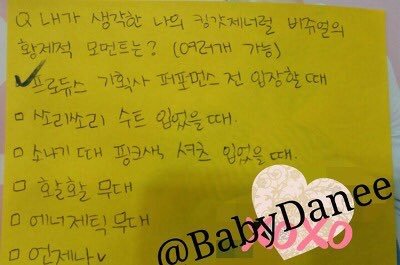 Q 내가 생각한 나의 킹갓제너럴 비쥬얼의
황제적 모먼트는? (여러개 가능)
프로듀스 기획사 퍼포먼스 전 입장할 때
쏘리쏘리 수트 입었을 때.
소나기 때 핑크색 셔츠 입었을 때.
활활활 무대
에너제틱 무대
언제나
@BabyDanee
XOXO